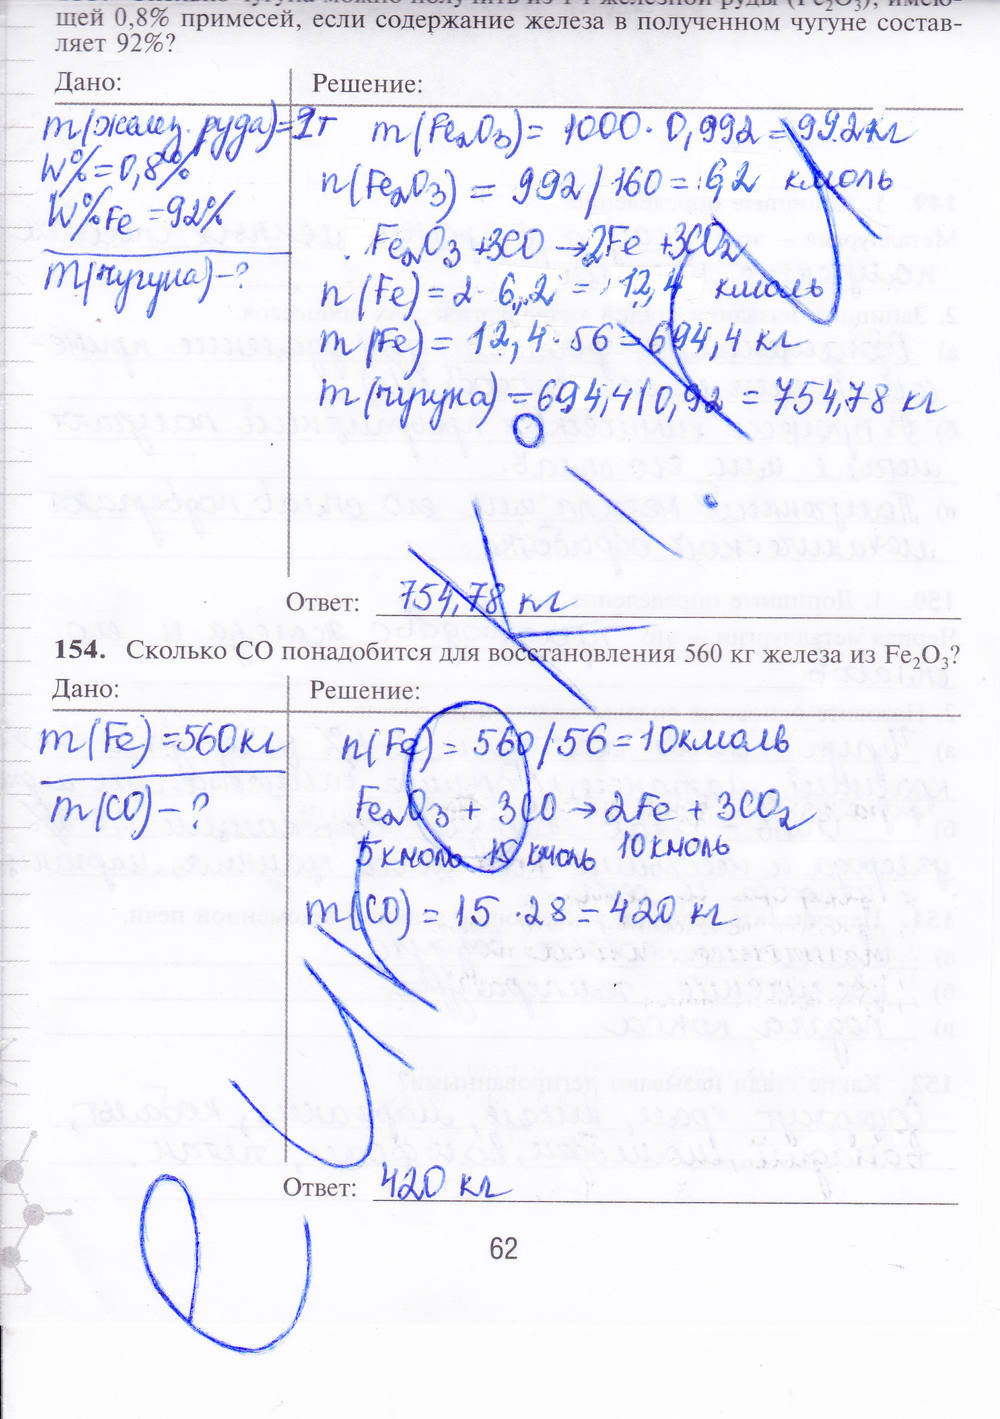 щей 0,8% примесей, если содержание железа в полученном чугуне состав-
ляет 92%?
Дано:
Решение:
m(желез. руда)=1т
W%=0,8%
W%Fe=92%
m(чугуна)-?
m(Fe₂O₃)= 1000·0,992=992кг
n(Fe₂O₃) = 992/160=6,2 кмоль
Fe₂O₃+3CO→2Fe+3CO₂
n(Fe)=2·6,2=12,4 кмоль
m(Fe)= 12,4·56=694,4 кг
m(чугуна)=694,4/0,92=754,78 кг
Ответ: 754,78 кг
154. Сколько CO понадобится для восстановления 560 кг железа из Fe₂O₃?
Дано:
Решение:
m(Fe)=560кг
m(CO)-?
n(Fe)=560/56=10кмоль
Fe₂O₃+3CO→2Fe+3CO₂
5кмоль 15кмоль 10кмоль
m(CO)=15·28=420 кг
Ответ: 420 кг
62